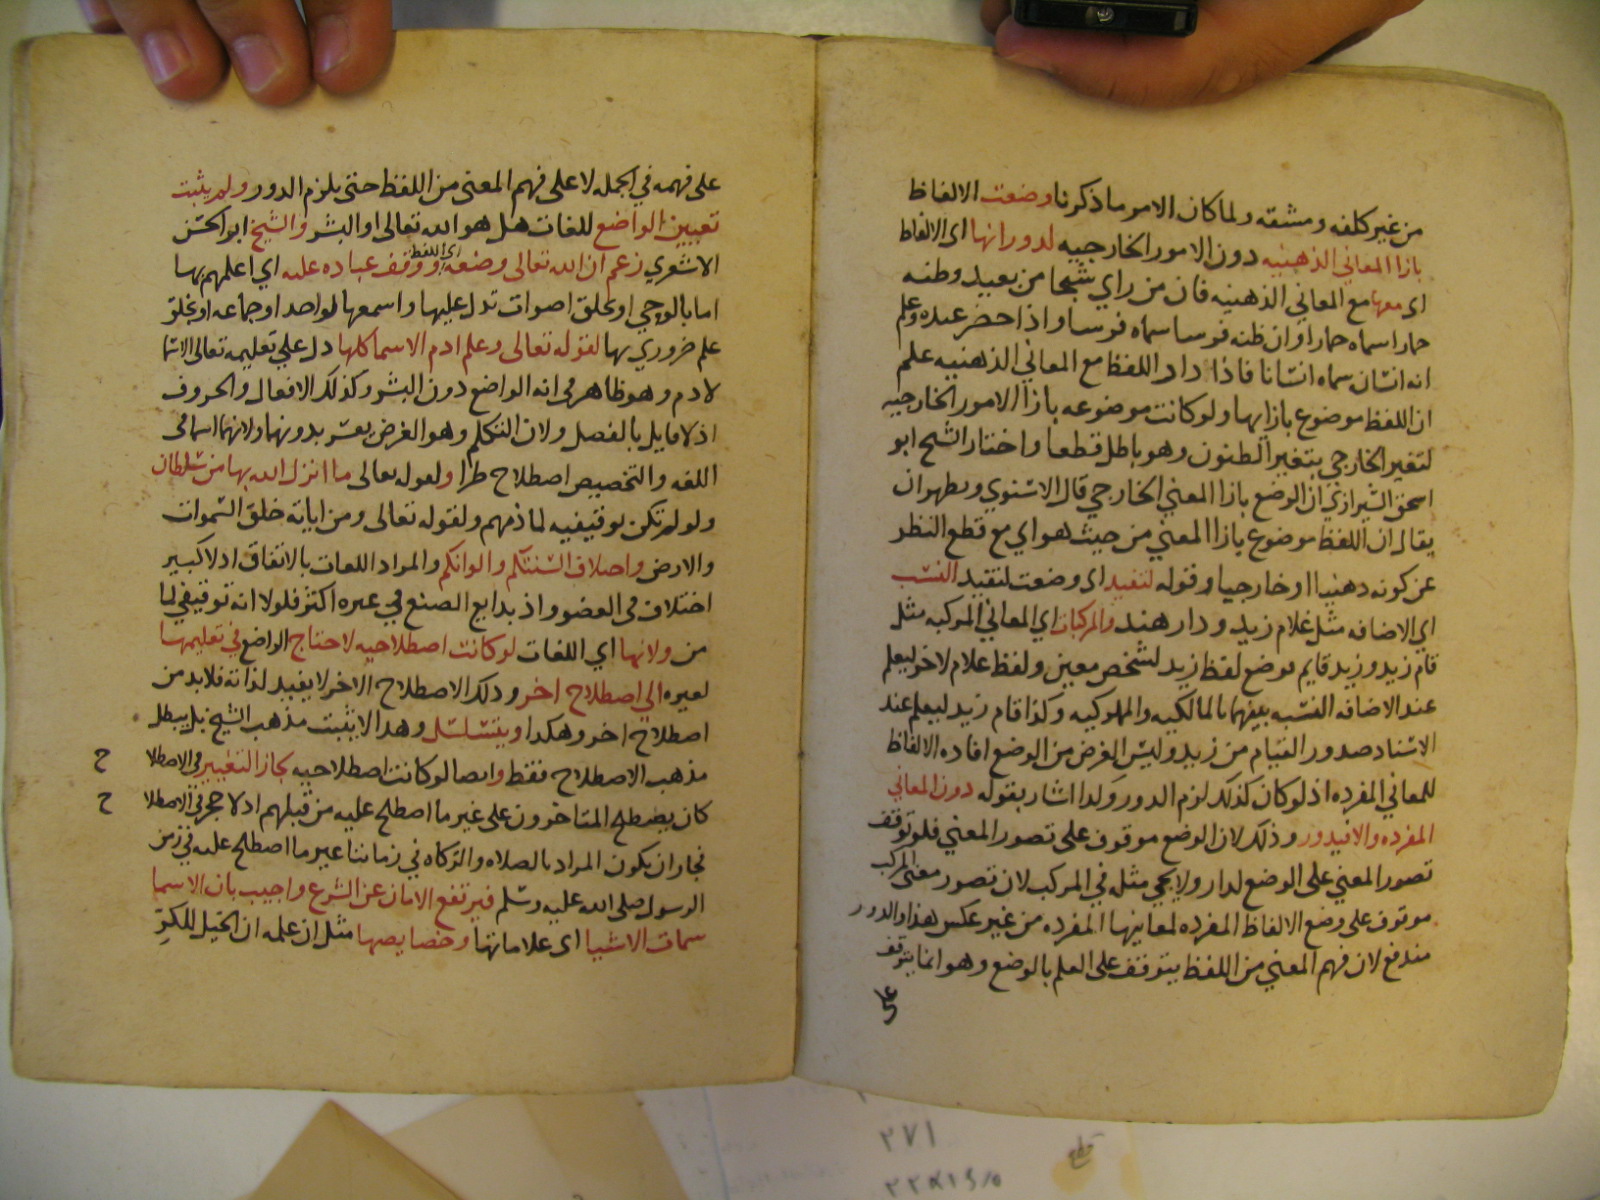 من غير كلفه ومشقه ولما كان الامر ما ذكرنا وضعت الالفاظ
بازا المعاني الذهنيه دون الامور الخارجيه لدورانها اى الالفاظ
اى معها مع المعاني الذهنيه فان من راي شبحا من بعيد وظنه
حمارا سماه حمارا وان ظنه فرسا سماه فرسا واذا حضر عنده وعلم
انه انسان سماه انسانا فاذا دار اللفظ مع المعاني الذهنيه علم
ان اللفظ موضوع بازايها ولو كانت موضوعه بازا الامور الخارجيه
لتغير الخارجي بتغير الظنون وهو باطل قطعا واختار الشيخ ابو
اسحق الشيرازي ان الوضع بازا المعني الخارجي قال الاسنوي ويظهر ان
يقال ان اللفظ موضوع بازا المعني من حيث هو اي مع قطع النظر
عن كونه دهنيا او خارجيا وقوله لتفيد اى وضعت لتفيد النسب
اي الاضافه مثل غلام زيد ودار هند والمركبات اي المعاني المركبه مثل
قام زيد وزيد قايم فوضع لفظ زيد لشخص معين ولفظ غلام لاخر ليعلم
عند الاضافه النسبه بينهما بالمالكيه والمملوكيه وكذا قام زيد ليعلم عند
الاسناد صدور القيام من زيد وليس الغرض من الوضع افاده الالفاظ
للمعاني المفرده اذ لو كان كذلك لزم الدور ولدا اشار بقوله دون المعاني
المفرده والا فيدور وذلك لان الوضع موقوف على تصور المعني فلو توقف
تصور المعني على الوضع لدار ولا يجي مثله في المركب لان تصور معنى المركب
موقوف على وضع الالفاظ المفرده لمعانيها المفرده من غير عكس هذا والدور
مندفع لان فهم المعني من اللفظ يتوقف على العلم بالوضع وهو انما يتوقف
على
على فهمه في الجمله لا على فهم المعنى من اللفظ حتى يلزم الدور ولم يثبت
تعيين الواضع للغات هل هو الله تعالى او البشر والشيخ ابو الحسن
الاشعري زعم ان الله تعالى وضعه اى اللفظ ووقف عباده عليه اي اعلمهم بها
اما بالوحي او بخلق اصوات تدل عليها واسمعها لواحد او جماعه او بخلق
علم ضروري بها لقوله تعالى وعلم ادم الاسما كلها دل علي تعليمه تعالى الاسما
لادم وهو ظاهر في انه الواضع دون البشر وكذلك الافعال والحروف
اذ لا قايل بالفصل ولان التكلم وهو الغرض يعسر بدونها ولانها اسما في
اللغه والتخصيص اصطلاح طرا ولقوله تعالى ما انزل الله بها من سلطان
ولو لم تكن توقيفيه لما ذمهم ولقوله تعالى ومن اياته خلق السموات
والارض واختلاف السنتكم والوانكم والمراد اللغات بالاتفاق اد لا كبير
اختلاف فى العضو واذ بدايع الصنع في غيره اكثر فلولا انه توقيفي لما
من ولانها اي اللغات لو كانت اصطلاحيه لاحتاج الواضع في تعليمها
لغيره الي اصطلاح اخر ودلك الاصطلاح الاخر لا يفيد لذاته فلا بد من
اصطلاح اخر وهكدا ويتسلسل وهدا لا يثبت مذهب الشيخ بل يبطل
مذهب الاصطلاح فقط وايضا لو كانت اصطلاحيه لجاز التغيير في الاصطلا ح
كان يصطلح المتاخرون على غير ما اصطلح عليه من قبلهم ادلا حجر في الاصطلا ح
فجاز ان يكون المراد بالصلاه والزكاه في زماننا غير ما اصطلح عليه في زمن
الرسول صلى الله عليه وسلم فيرتفع الامان عن الشرع واجيب بان الاسما
سمات الاشيا اى علاماتها وخصايصها مثل ان علمه ان الخيل للكر
٢٧١